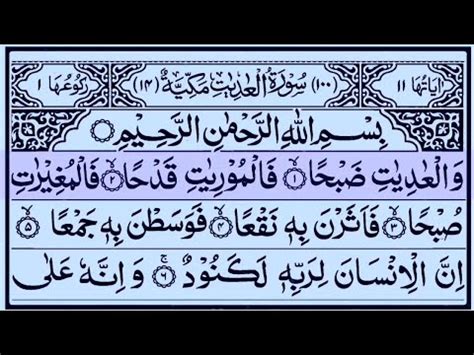 اٰیَاتُهَا ۱۱ (۱۰۰) سُوْرَةُ الْعٰدِیٰتِ مَكِّیَّةٌ (۱۴) رُكُوْعُهَا ۱
بِسْمِ اللّٰهِ الرَّحْمٰنِ الرَّحِیْمِ
وَ الْعٰدِیٰتِ ضَبْحًا ۱ فَالْمُوْرِیٰتِ قَدْحًا ۲ فَالْمُغِیْرٰتِ
صُبْحًا ۳ فَاَثَرْنَ بِهٖ نَقْعًا ۴ فَوَسَطْنَ بِهٖ جَمْعًا ۵
اِنَّ الْاِنْسَانَ لِرَبِّهٖ لَكَنُوْدٌ ۶ وَ اِنَّهٗ عَلٰی